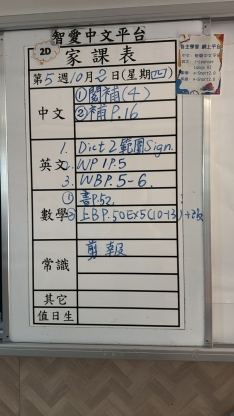 智愛中文平台
2D
家課表
第5週10月2日(星期四)
中文
①閱補(4)
②補P.16
英文
1. Dict 2 範圍 Sign.
2. WP1P.5
3. WBP.5-6.
數學
①書P.52
上BP.50EX5(10-13)
常識
剪報
其它
值日生
自主學習 網上平台